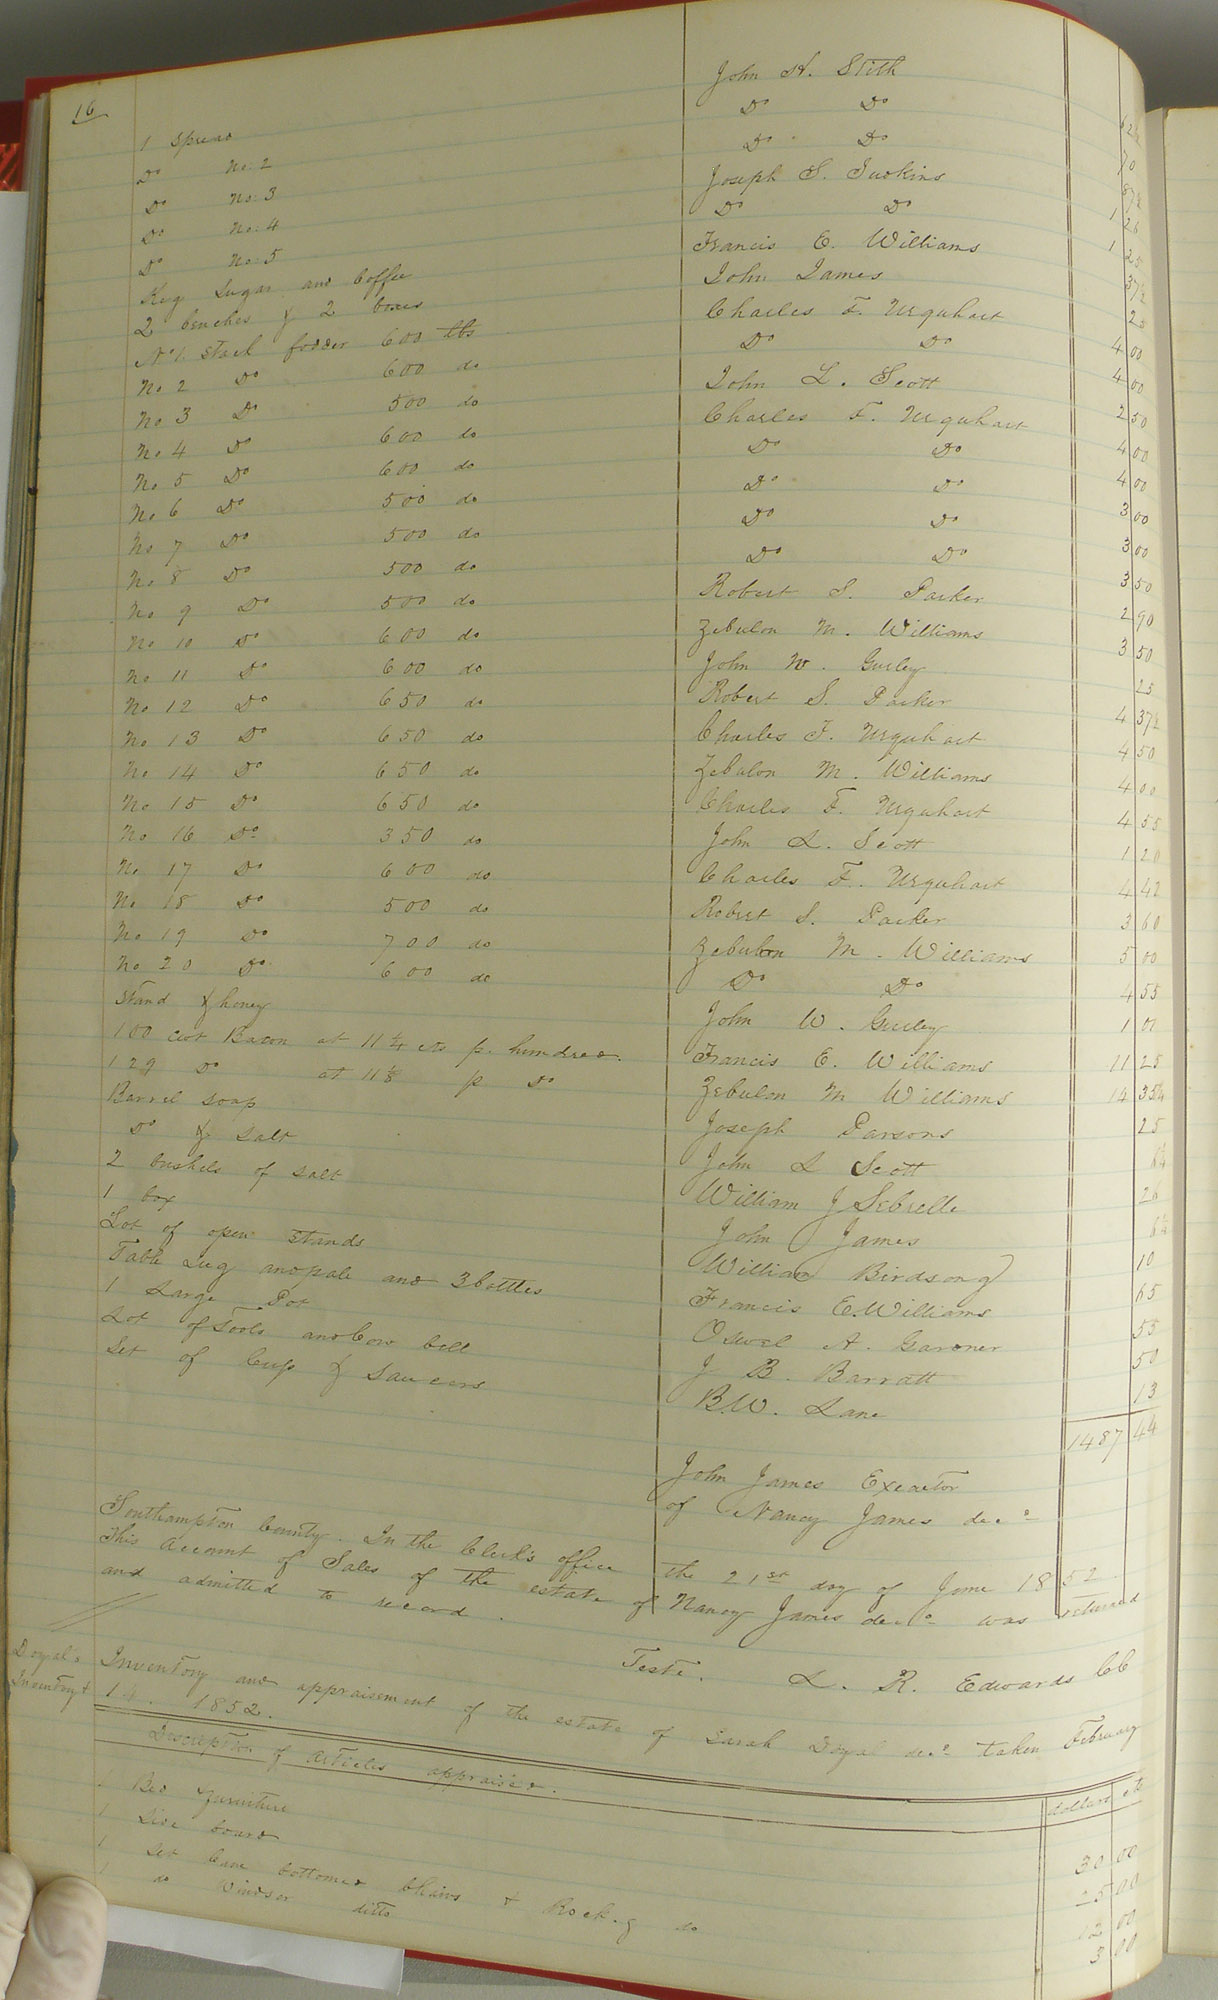 16
1 Spread John N. Stith 62½
Do No. 2 Do Do 70
Do No. 3 Do Do 87½
Do No. 4 Joseph S. Judkins 1 26
Do No. 5 Do Do 1 25
Keg Sugar and Coffee Francis E. Williams 37½
2 benches & 2 boxes John James 25
No 1. Stack fodder 600 lbs Charles F. Urquhart 4 00
No 2 Do 600 do Do Do 4 00
No 3 Do 500 do John L. Scott 2 50
No 4 Do 600 do Charles F. Urquhart 4 00
No 5 Do 600 do Do Do 4 00
No 6 Do 500 do Do Do 3 00
No 7 Do 500 do Do Do 3 00
No 8 Do 500 do Do Do 3 50
No 9 Do 500 do Robert S. Parker 2 90
No 10 Do 600 do Zebulon M. Williams 3 50
No 11 Do 600 do John W. Gurley 25
No 12 Do 650 do Robert S. Parker 4 37½
No 13 Do 650 do Charles F. Urquhart 4 50
No 14 Do 650 do Zebulon M. Williams 4 00
No 15 Do 650 do Charles F. Urquhart 4 55
No 16 Do 350 do John L. Scott 1 20
No 17 Do 600 do Charles F. Urquhart 4 42
No 18 Do 500 do Robert S. Parker 3 60
No 19 Do 700 do Zebulon M. Williams 5 00
No 20 Do 600 do Do Do 4 55
Stand of honey John W. Gurley 1 01
100 cwt Bacon at 11¼ cts p. hundred. Francis E. Williams 11 25
129 Do at 11⅛ p Do Zebulon M Williams 14 35¼
Barrel Soap Joseph Parsons 25
Do of Salt John L Scott 6¼
2 bushels of salt William J Sebrelle 26
1 box John James 6¼
Lot of open stands William Birdsong 10
Table Jug and pale and 3 bottles Francis E. Williams 65
1 Large Pot Oswel A. Gardner 55
Lot of Tools and Cow bell J B. Barratt 50
Set of Cups & Saucers B.W. Lane 13
1487 44
John James Exeactor
of Nancy James decd
Southampton County. In the Clerk's office the 21st day of June 1852.
This Account of Sales of the estate of Nancy James decd was returned
and admitted to record.
Teste. L. R. Edwards CC
Doyal's Inventory & Inventory and appraisement of the estate of Sarah Doyal decd taken February
14. 1852.
Description of articles appraised. dollars cts
1 Bed & furniture 30 00
1 Side board 25 00
1 Set Cane bottomed Chairs & Rock.g do 12 00
1 do Windsor ditto 3 00